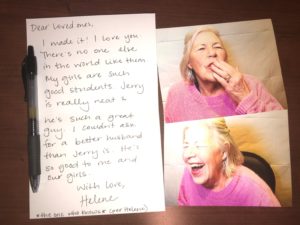 Dear Loved ones,
I made it! I love you
There's no one else
in the world like them.
My girls are such
good students. Jerry
is really neat &
he's such a great
guy. I couldn't ask
for a better husband
than Jerry is. He is
so good to me and
our girls.
With love,
Helene